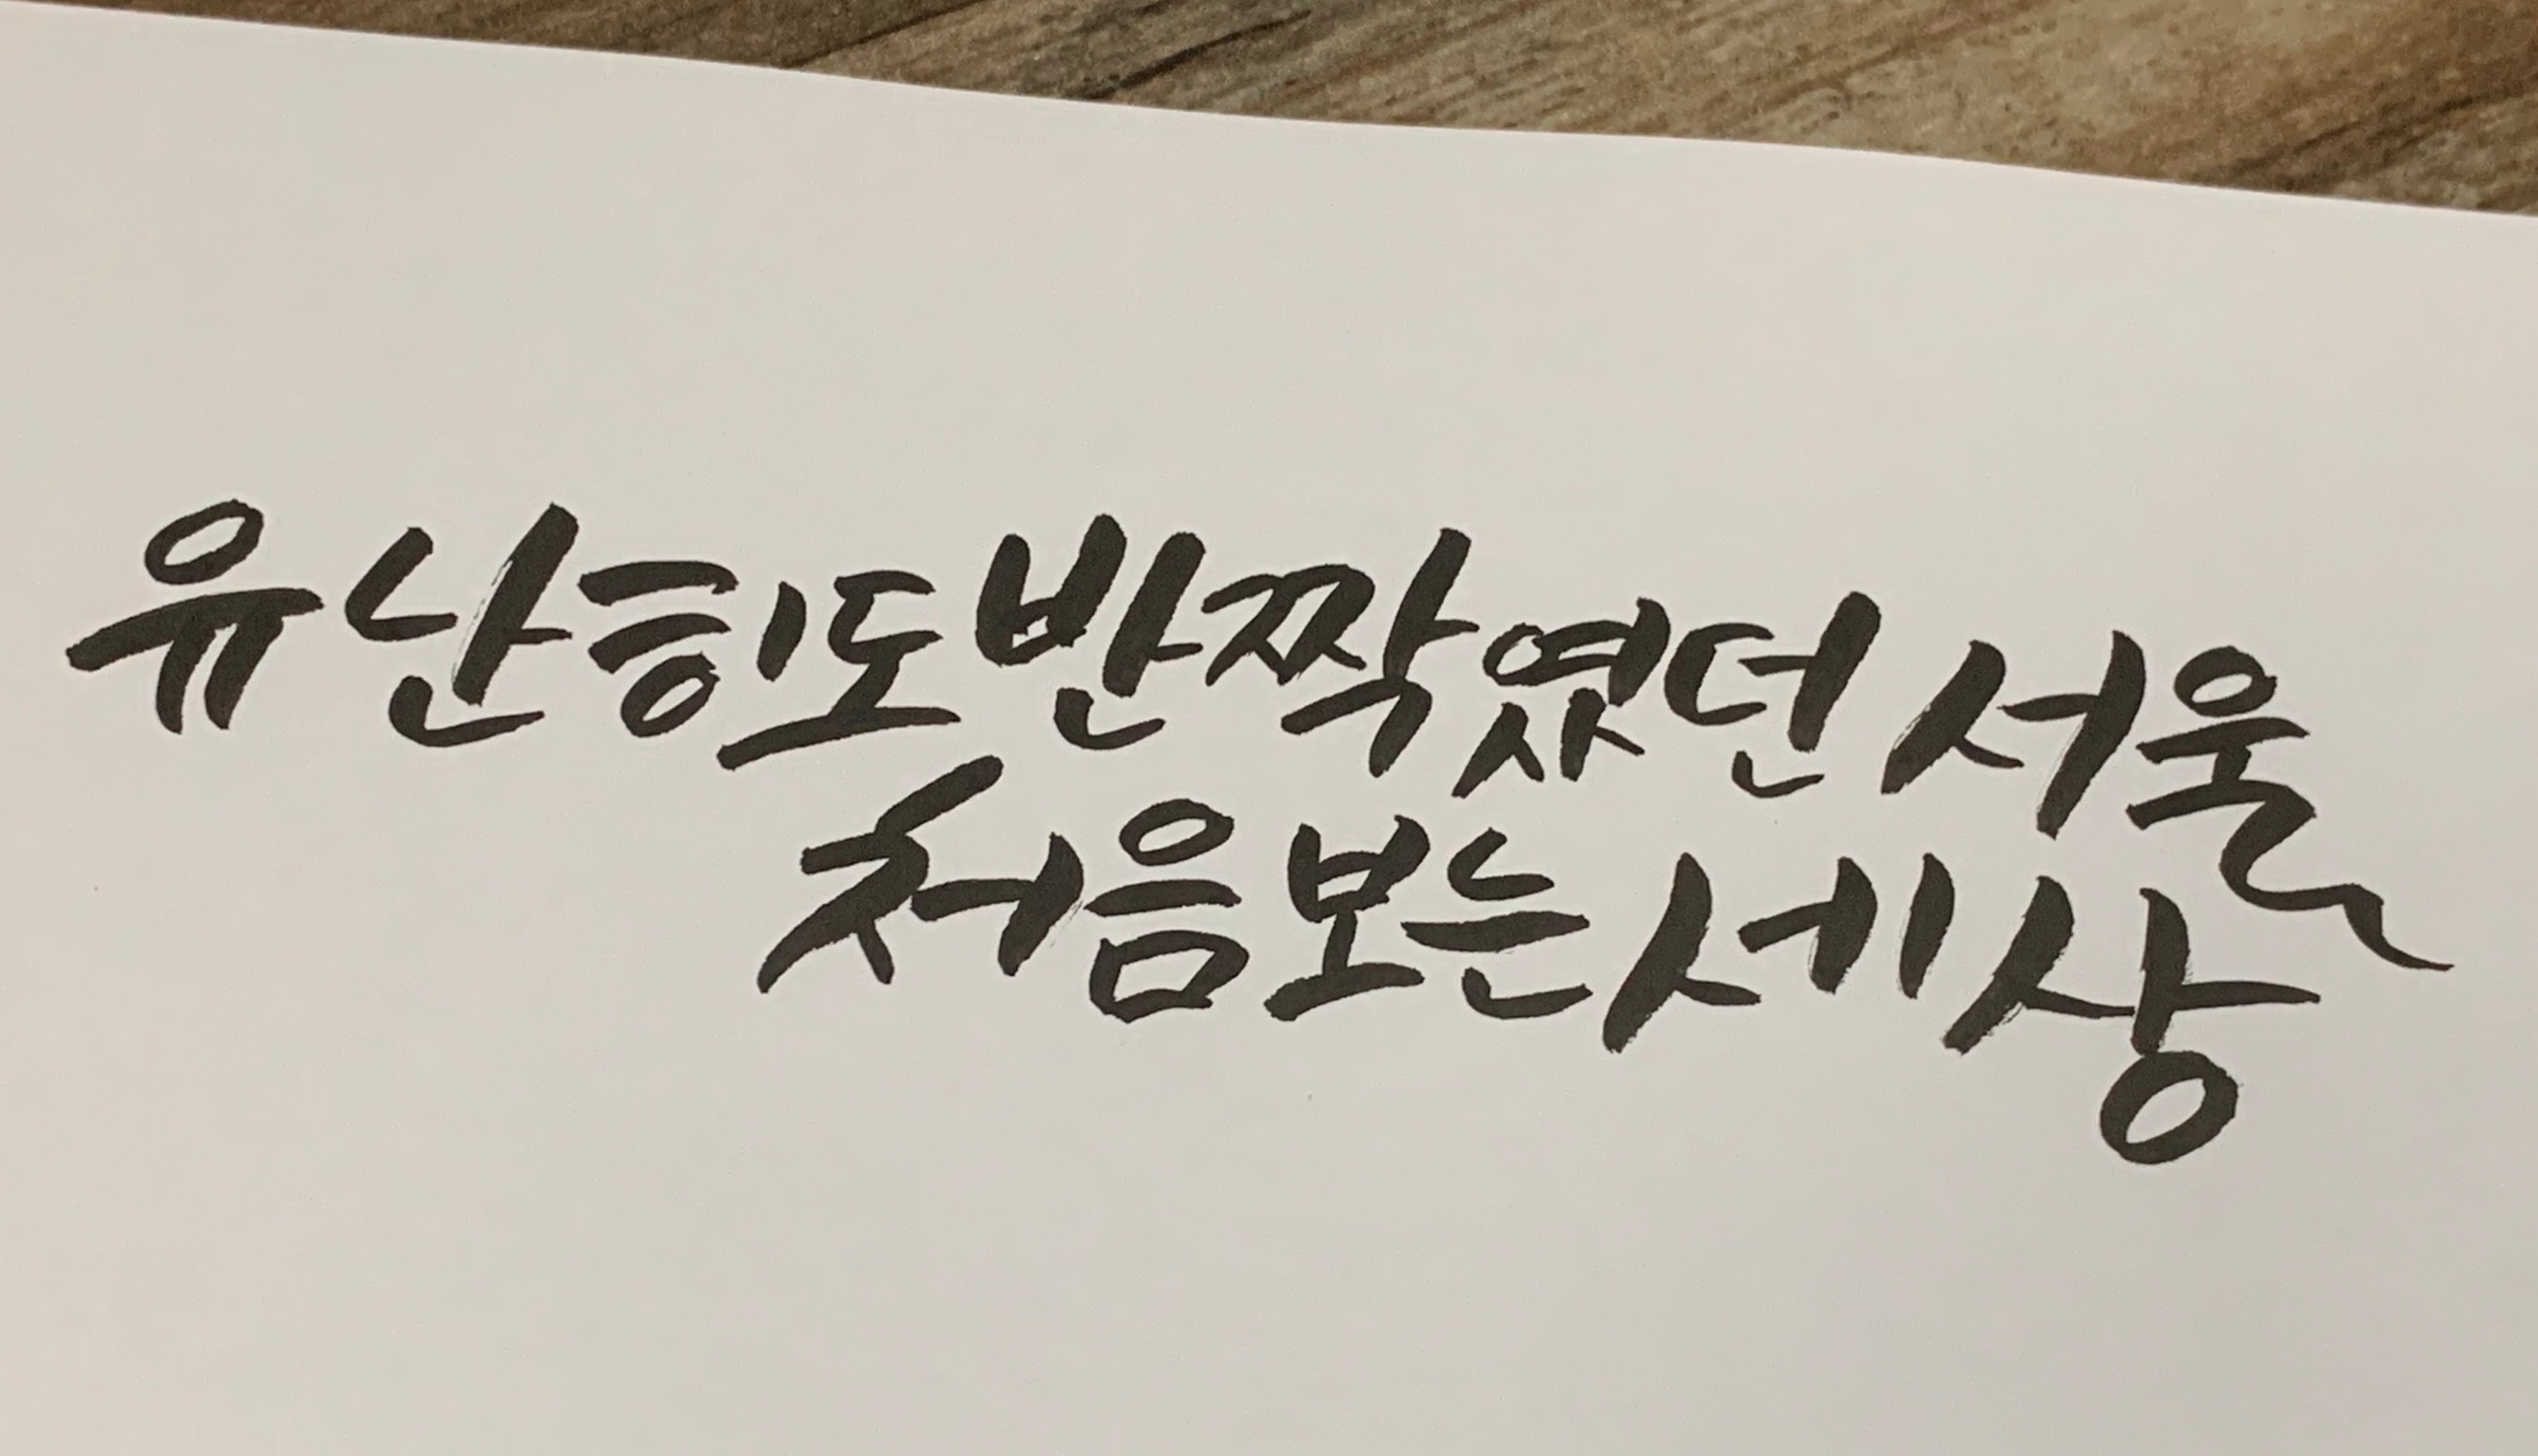 유난히도 반짝였던 서울
처음 보는 세상